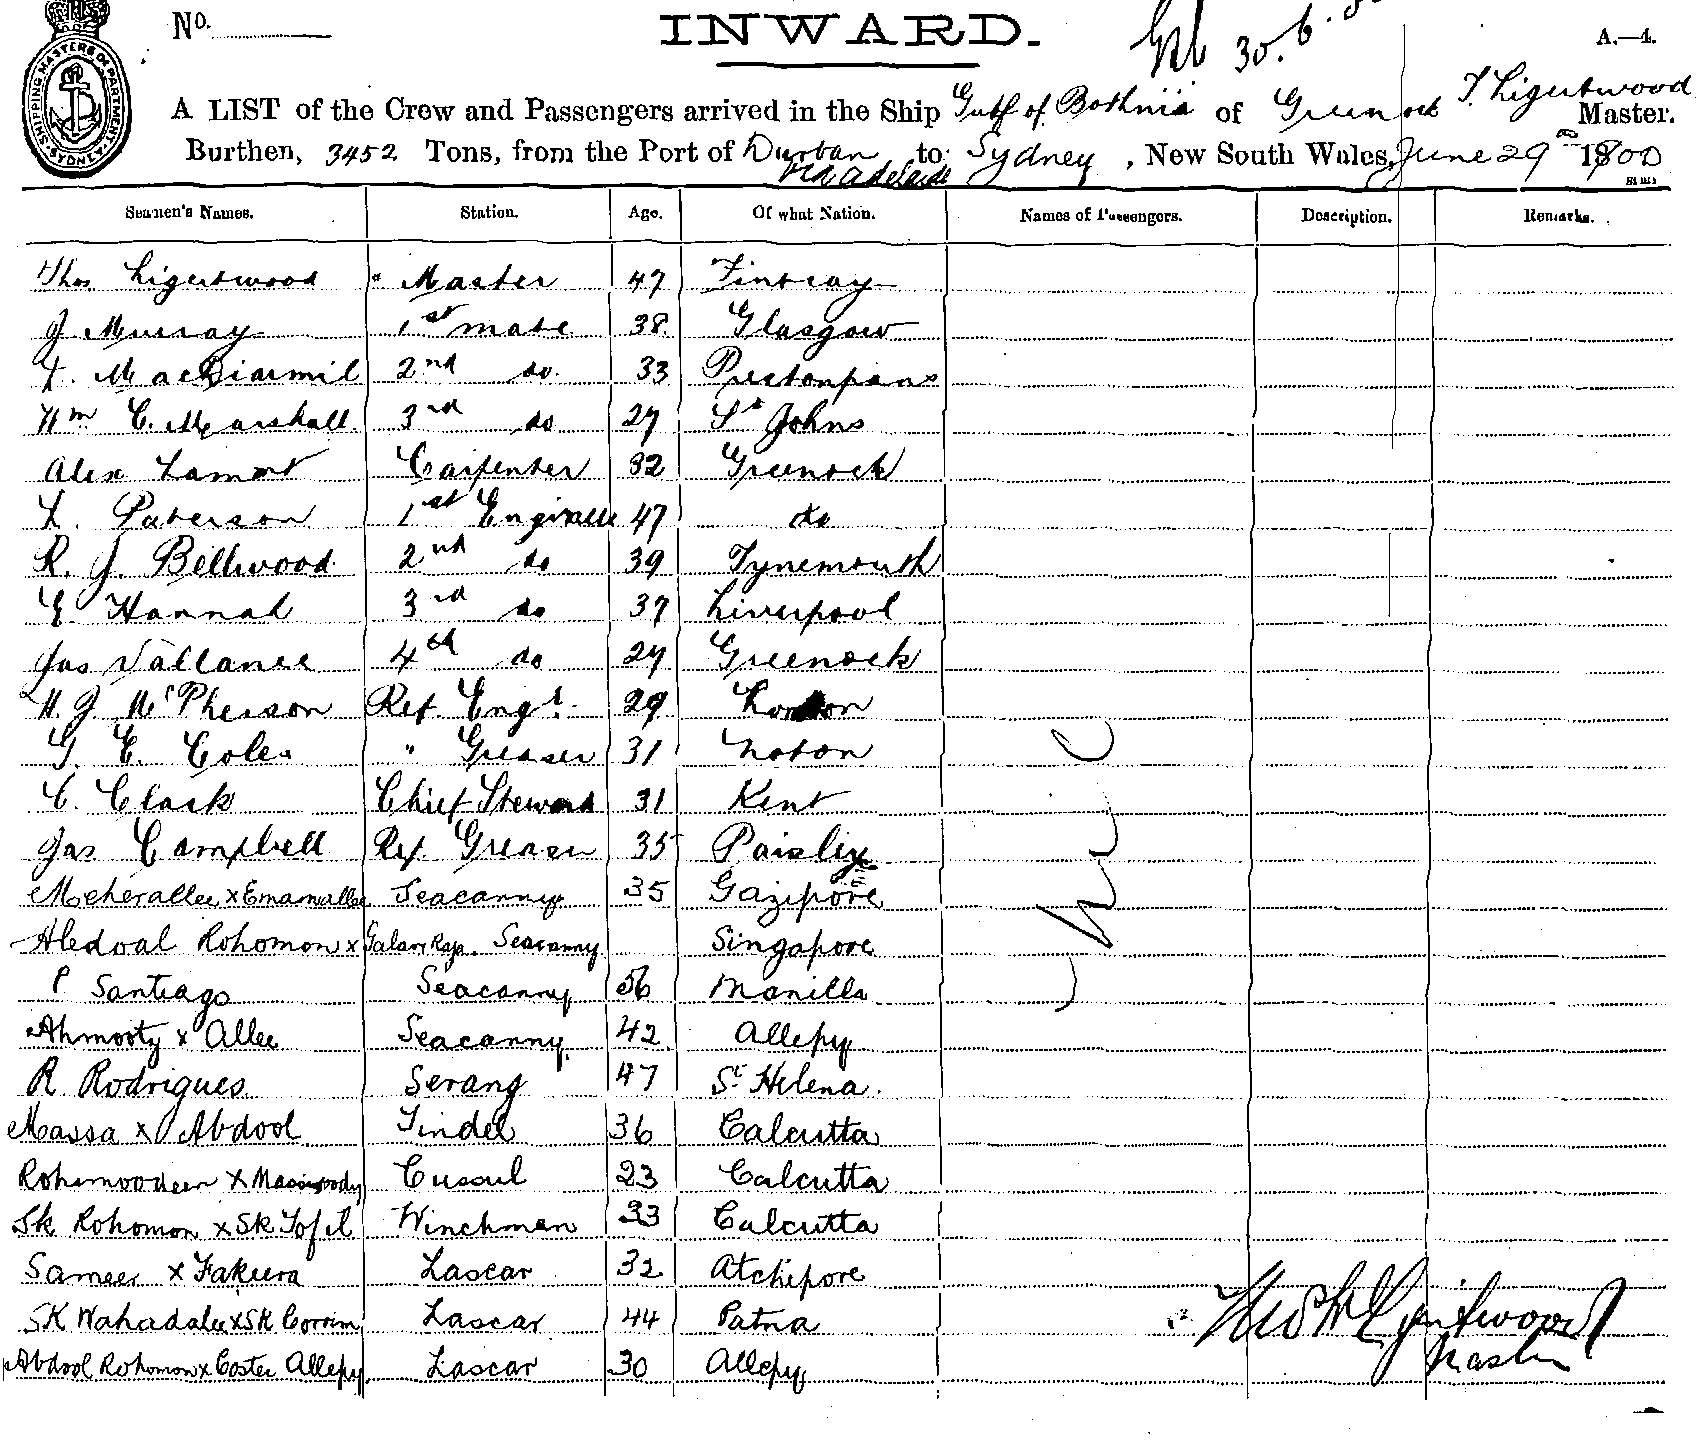 No.
INWARD.
30.6.
A.—4.
SHIPPING MASTERS DEPARTMENT SYDNEY
A LIST of the Crew and Passengers arrived in the Ship Gulf of Bothnia of Greenock T. Ligertwood Master.
Burthen, 3452 Tons, from the Port of Durban via Adelaide to Sydney, New South Wales, June 29th 1900
Seamen's Names. Station. Age. Of what Nation. Names of Passengers. Description. Remarks.
Thos Ligertwood Master 47 Fintray
J Murray 1st mate 38 Glasgow
MacDiarmid 2nd do 33 Prestonpans
Wm C. Marshall 3rd do 27 St Johns
Alex Lamont Carpenter 32 Greenock
L. Paterson 1st Engineer 47 do
R. J. Bellwood 2nd do 39 Tynemouth
E Hannah 3rd do 37 Liverpool
Jas Vallance 4th do 27 Greenock
H. J. McPherson Ref. Engr. 29 London
G. E. Coles " Greaser 31
C. Clark Chief Steward 31 Kent
Jas Campbell Ref. Greaser 35 Paisley
Meherallee x Emamallee Seacanny 35 Gazipore
Abdoal Rohomon x Seacanny Singapore
P Santiago Seacanny 56 Manilla
Ahmooty x Allee Seacanny 42 Allepy
R Rodrigues Serang 47 St Helena.
Massa x Abdool Tindel 36 Calcutta
Rohimoodeen x Cussul 23 Calcutta
Sk Rohomon x Sk Tofil Winchman 33 Calcutta
Sameer x Fakura Lascar 32 Atchipore
SK Wahadalee x SK Corrim Lascar 44 Patna
Abdool Rohomon x Coster Allepy Lascar 30 Allepy
Thos Ligertwood
Master